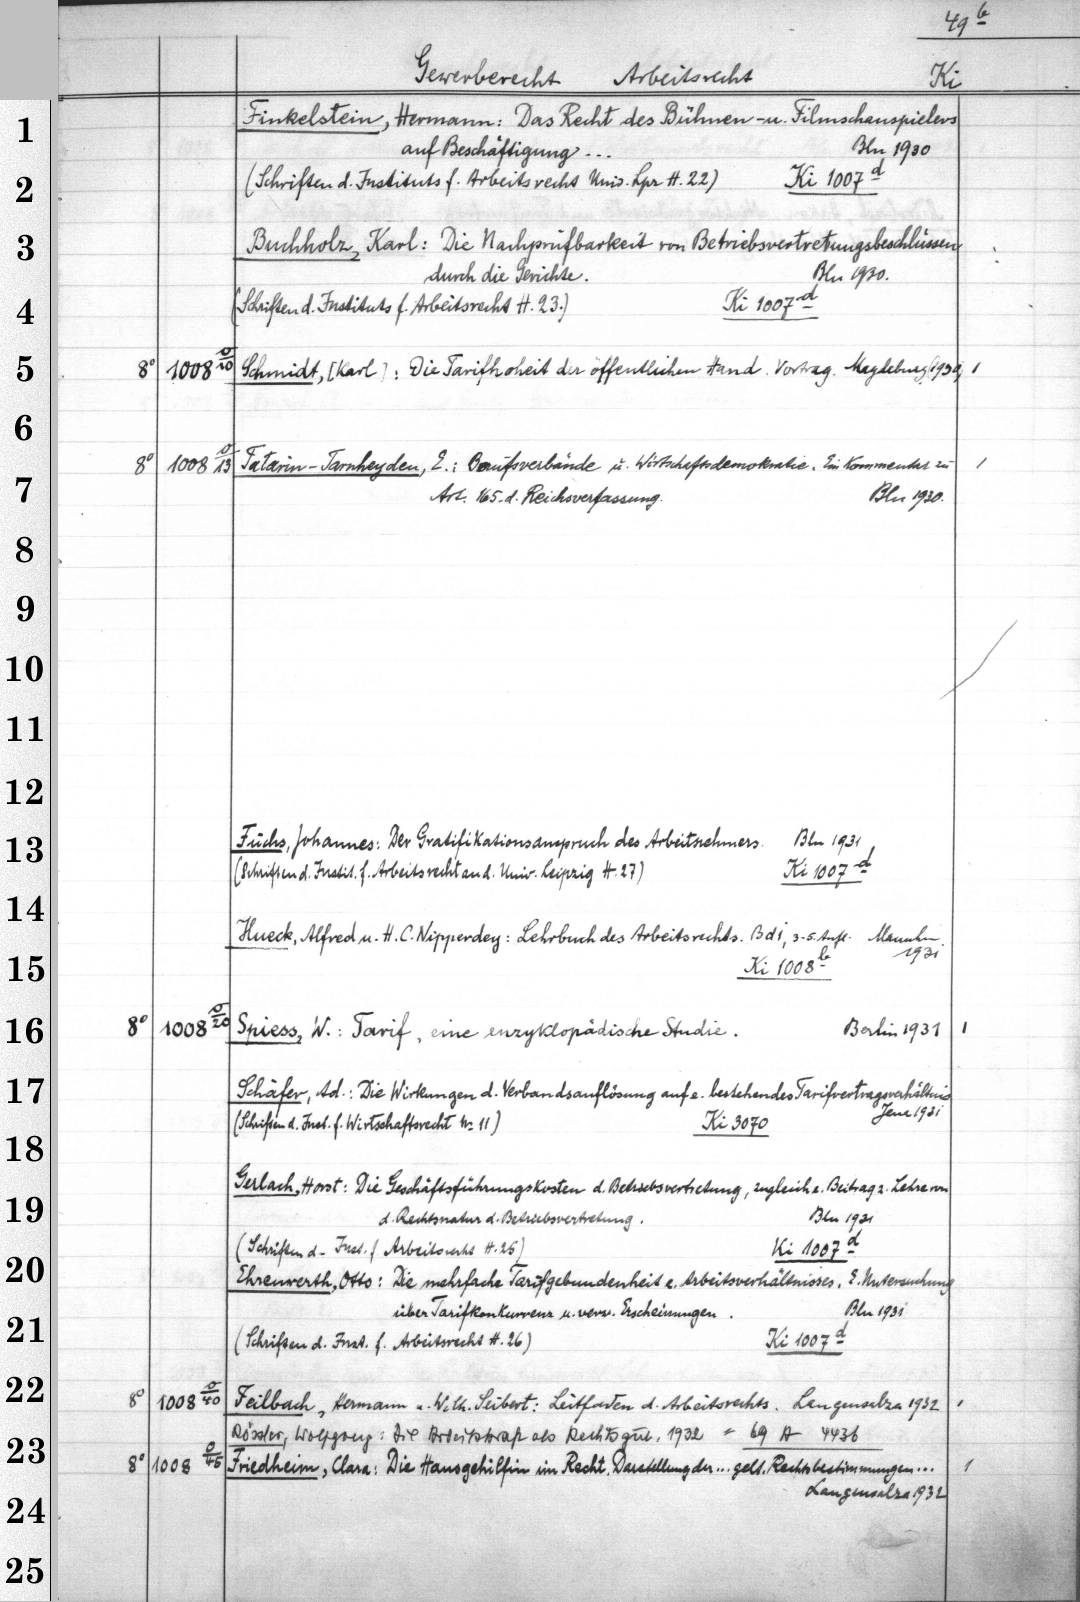 49 b
Gewerberecht Arbeitsrecht Ki
1 Finkelstein, Hermann: Das Recht des Bühnen- u. Filmschauspielers
auf Beschäftigung ... Bln 1930
2 (Schriften d. Instituts f. Arbeitsrecht Univ. Lpz H. 22) Ki 1007 d
3 Buchholz, Karl: Die Nachprüfbarkeit von Betriebsvertretungsbeschlüssen
durch die Gerichte. Bln 1930.
4 (Schriften d. Instituts f. Arbeitsrecht H. 23.) Ki 1007 d
5 8° 1008 o/10 Schmidt, [Karl]: Die Tarifhoheit der öffentlichen Hand. Vortrag. Magdeburg (1930) 1
6
8° 1008 o/13 Tatarin-Tarnheyden, E.: Berufsverbände u. Wirtschaftsdemokratie. Ein Kommentar zu 1
7 Art. 165 d. Reichsverfassung. Bln 1930.
8
9
10
11
12
13 Fuchs, Johannes: Der Gratifikationsanspruch des Arbeitnehmers. Bln 1931
(Schriften d. Instit. f. Arbeitsrecht an d. Univ. Leipzig H. 27) Ki 1007 d
14
Hueck, Alfred u. H. C. Nipperdey: Lehrbuch des Arbeitsrechts. Bd 1, 3-5. Aufl. Mannhm.
1931
15 Ki 1008 b
16 8° 1008 o/20 Spiess, W.: Tarif, eine enzyklopädische Studie. Berlin 1931 1
17 Schäfer, Ad.: Die Wirkungen d. Verbandsauflösung auf e. bestehendes Tarifvertragsverhältnis
Jena 1931
(Schriften d. Inst. f. Wirtschaftsrecht Nr 11) Ki 3070
18
Gerlach, Horst: Die Geschäftsführungskosten d. Betriebsvertretung, zugleich e. Beitrag z. Lehre von
19 d. Rechtsnatur d. Betriebsvertretung. Bln 1931
(Schriften d. Inst. f. Arbeitsrecht H. 25) Ki 1007 d
20 Ehrenwerth, Otto: Die mehrfache Tarifgebundenheit e. Arbeitsverhältnisses. E. Untersuchung
über Tarifkonkurrenz u. verw. Erscheinungen. Bln 1931
21 (Schriften d. Inst. f. Arbeitsrecht H. 26) Ki 1007 d
22 8° 1008 o/40 Feilbach, Hermann u. Wilh. Seibert: Leitfaden d. Arbeitsrechts. Langensalza 1932 1
Rössler, Wolfgang: Die Arbeitskraft als Rechtsgut. 1932 = 69 A 4436
23 8° 1008 o/45 Friedheim, Clara: Die Hausgehilfin im Recht. Darstellung der ... gelt. Rechtsbestimmungen ... 1
Langensalza 1932
24
25